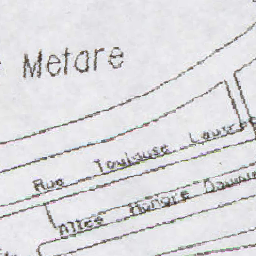 Metare
Rue Toulouse Lautrec
Allée Honoré Daumier